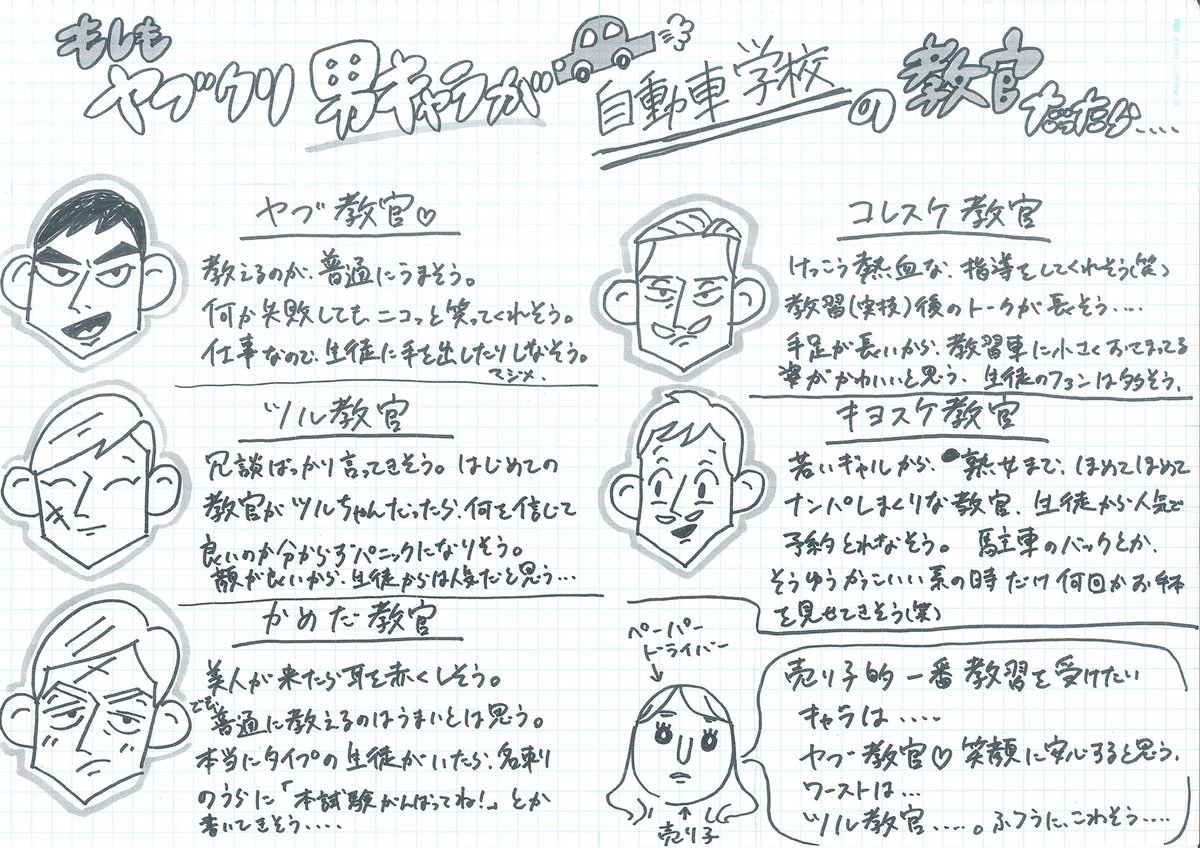 もしも
ヤブクリ男キャラが自動車学校の教官だったら....
ヤブ教官♡
教えるのが、普通にうまそう。
何か失敗しても、ニコっと笑ってくれそう。
仕事なので、生徒に手を出したりしなそう。
マジメ.
ツル教官
冗談ばっかり言ってきそう。はじめての
教官がツルちゃんだったら、何を信じて
良いのか分からずパニックになりそう。
顔が良いから、生徒からは人気だと思う…
かめだ教官
美人が来たら耳を赤くしそう。
でも、普通に教えるのはうまいとは思う。
本当にタイプの生徒がいたら、名刺
のうらに「本試験がんばってね!」とか
書いてきそう.....
コレスケ教官
けっこう熱血な、指導をしてくれそう(笑)
教習(実技)後のトークが長そう....
手足が長いから、教習車に小さくおさまってる
姿がかわいいと思う、生徒のファンは多そう.
キヨスケ教官
若いギャルから、熟女まで、ほめてほめて
ナンパしまくりな教官、生徒から人気で
予約とれなそう。 駐車のバックとか、
そうゆうかっこいい系の時だけ何回かお手本
を見せてきそう(笑)
ペーパー
ドライバー
売り子
売り子的一番教習を受けたい
キャラは....
ヤブ教官♡ 笑顔に安心すると思う.
ワーストは...
ツル教官.....。ふつうに、こわそう....